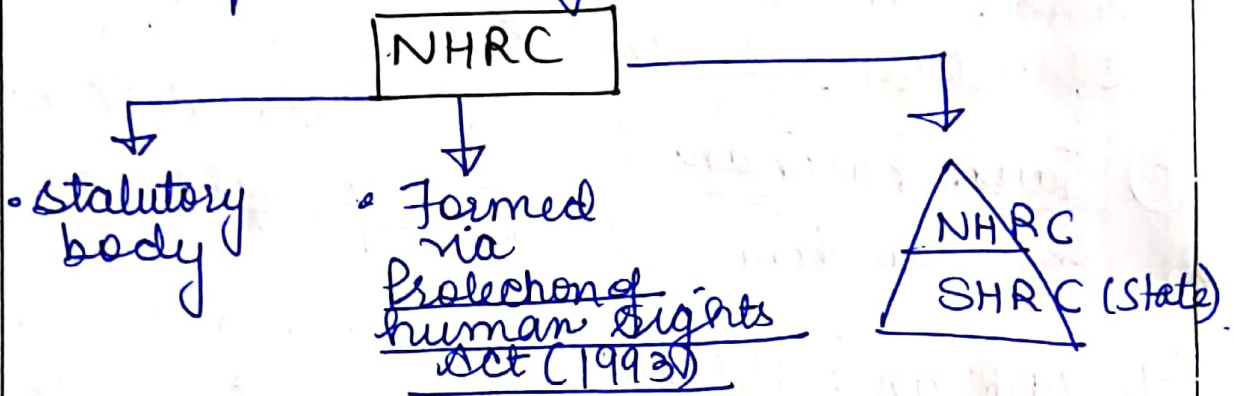 NHRC
• Statutory
body
• Formed
via
Protection of
human Rights
Act (1993)
NHRC
SHRC (State)